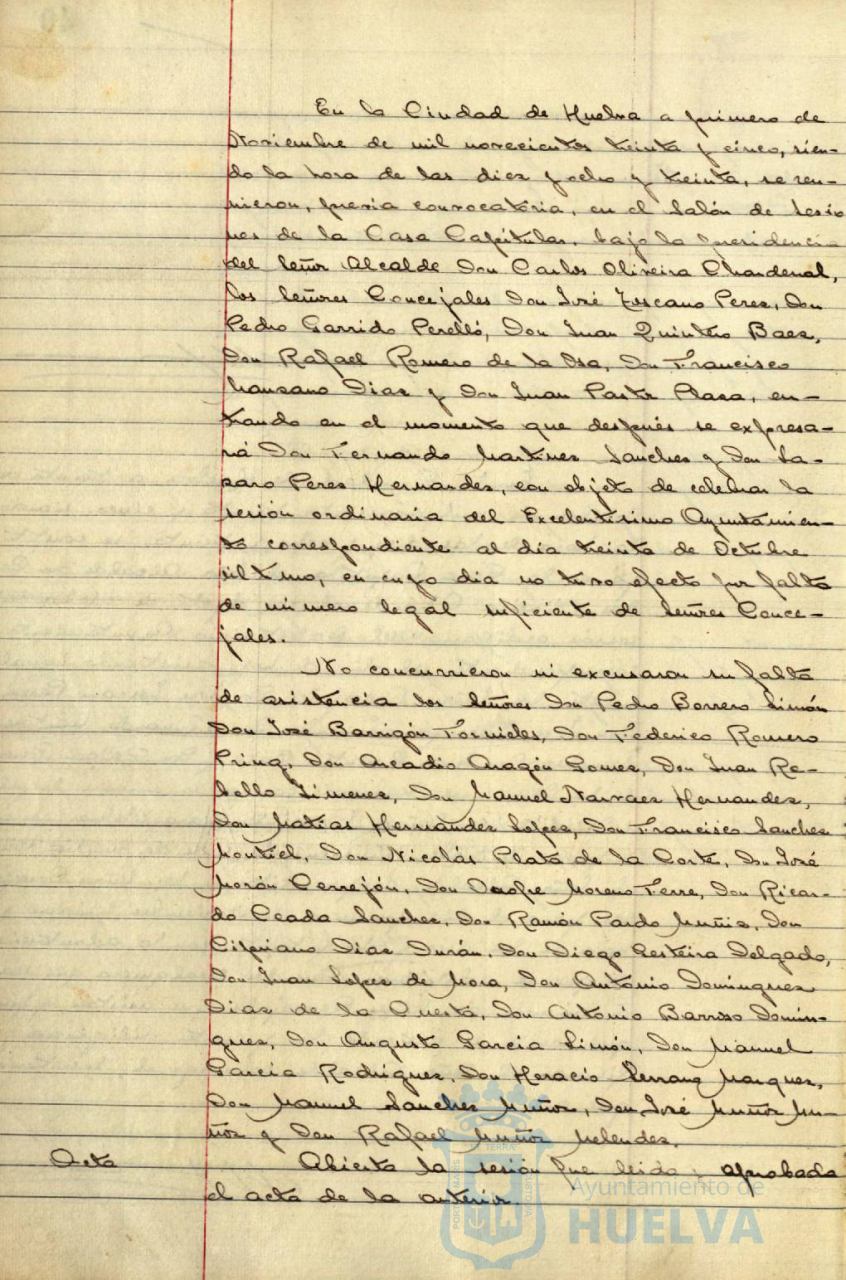 En la Ciudad de Huelva a primero de
Noviembre de mil novecientos treinta y cinco, sien-
do la hora de las diez y ocho y treinta, se reu-
nieron, previa convocatoria, en el Salón de Sesio
nes de la Casa Capitular, bajo la presidencia
del Señor Alcalde Don Carlos Oliveira Chardenal,
los Señores Concejales Don José Toscano Perez, Don
Pedro Garrido Perelló, Don Juan Quintero Baez,
Don Rafael Romero de la Osa, Don Francisco
Manzano Diaz y Don Juan Pastr Plaza, en-
trando en el momento que después se expresa-
rá Don Fernando Martinez Sanchez y Don La-
zaro Perez Hernandez, con objeto de celebrar la
sesión ordinaria del Excelentisimo Ayuntamien-
to correspondiente al dia treinta de Octubre
último, en cuyo dia no tuvo efecto por falta
de número legal suficiente de Señores Conce-
jales.
No concurrieron ni excusaron su falta
de asistencia los Señores Don Pedro Borrero Limón
Don José Barrigón Fornieles, Don Federico Romero
Don Arcadio Aragón Gomez, Don Juan Re-
bollo Jimenez, Don Manuel Narvaez Hernandez,
Don Matias Hernandez Lopez, Don Francisco Sanchez
Montiel, Don Nicolás Plata de la Corte, Don José
Morón Cerrejón, Don Onofre Moreno Ferre, Don Ricar-
do Ceada Sanchez, Don Ramón Pardo Muñiz, Don
Cipriano Diaz Durán, Don Diego Gesteira Delgado,
Don Juan Lopez de Mora, Don Antonio Dominguez
Diaz de la Cuesta, Don Antonio Barroso Domin-
guez, Don Augusto Garcia Limón, Don Manuel
Garcia Rodriguez, Don Horacio Serrano Marquez,
Don Manuel Sanchez Muñoz, Don José Muñoz Mu-
ñoz y Don Rafael Muñoz Melendez.
Acta Abierta la sesión fue leida y aprobada
el acta de la anterior.
Ayuntamiento de
HUELVA